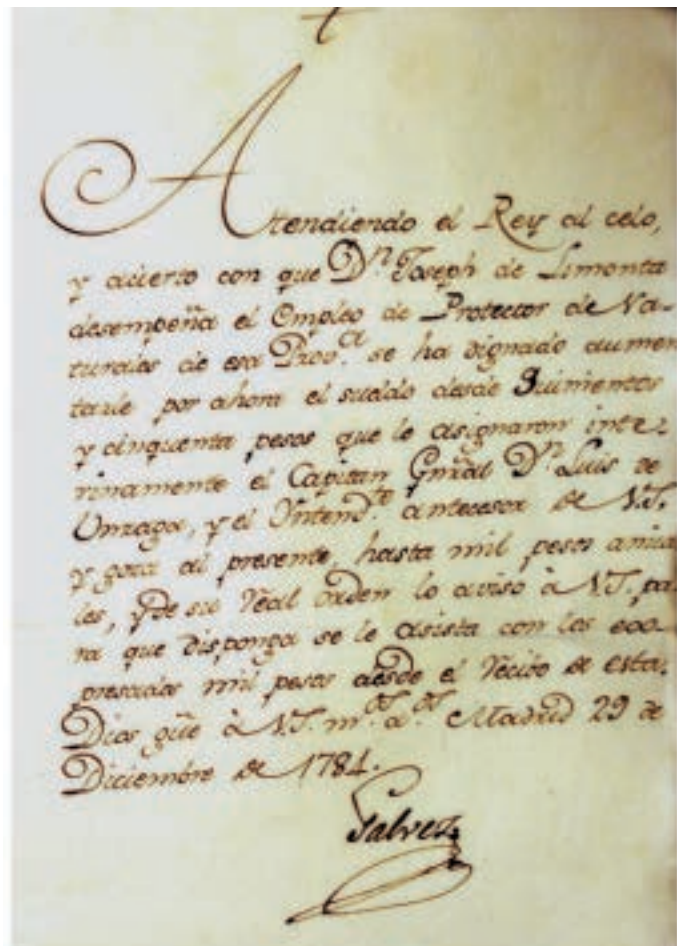 Atendiendo el Rey al celo,
y acierto con que Dn. Joseph de Limonta
desempeña el Empleo de Protector de Na-
turales de esa Prova. se ha dignado aumen
tarle por ahora el sueldo desde Quinientos
y cinquenta pesos que le asignaron inte-
rinamente el Capitan Gnral Dn. Luis de
Unzaga, y el Yntendte. antecesor de V.S.
y goza al presente, hasta mil pesos anua
les, y de su Real orden lo aviso à V.S. pa-
ra que disponga se le asista con los exo-
presados mil pesos desde el Recibo de esta.
Dios gũe à V.S. ms. as. Madrid 29 de
Diciembre de 1784.
Galvez